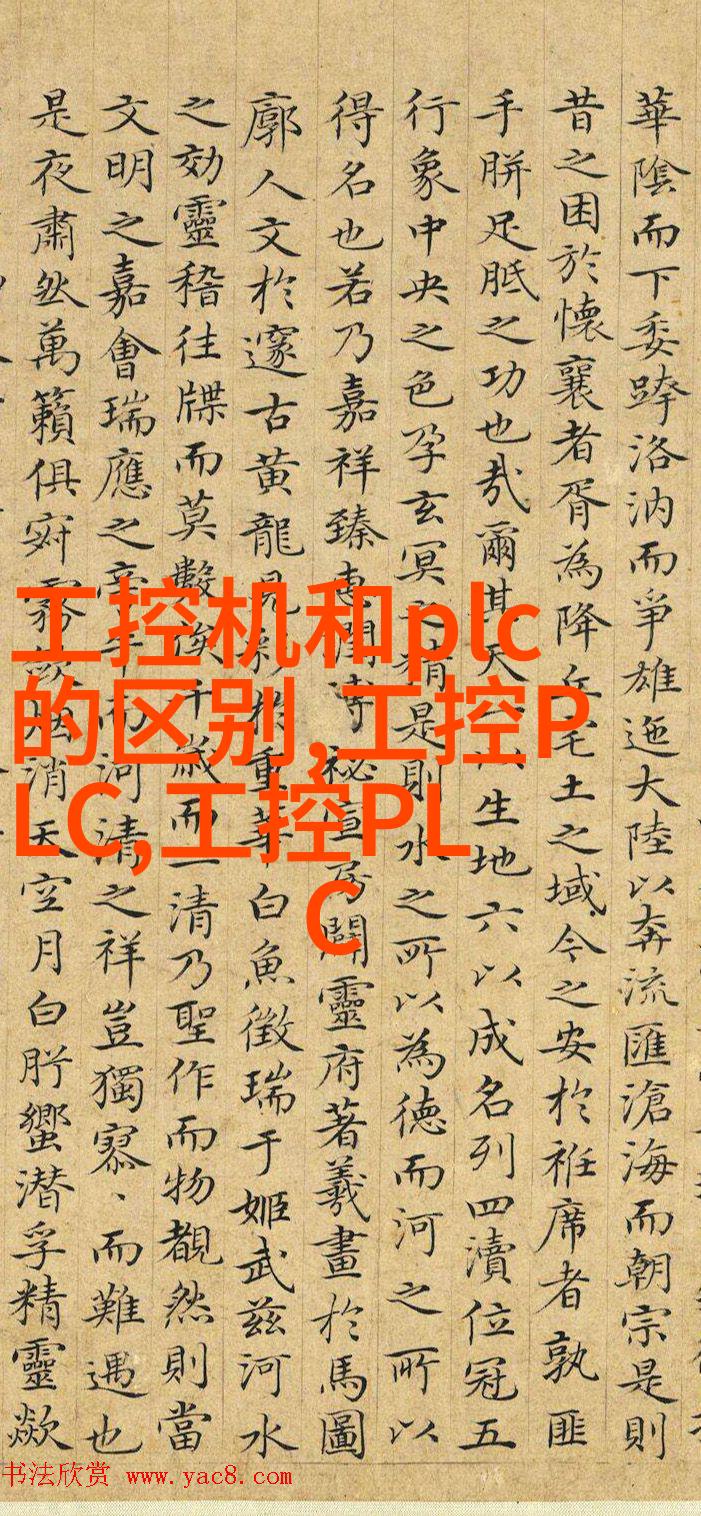 華陰而下委跨洛汭而爭雄迤大陸以奔流匯滄海而朝宗是則
昔之困於懷襄者胥為降丘宅土之域今之安於袵席者孰匪
手胼足胝之功也哉爾其天一以生地六以成名列四瀆位冠五
行象中央之色孕玄冥之精是則水之所以為德而河之所以
得名也若乃嘉祥臻惠祕宣房闢靈府著羲畫於馬圖
廓人文於邃古黃龍見彩於重華白魚徵瑞于姬武茲河水
之効靈稽往牒而莫數俟千歲而一清乃聖作而物覩然則當
文明之嘉會瑞應之年而河清之祥豈獨寡、而難遇也
是夜肅然萬籟俱寂霧斂烟消天空月白肹蠁潜孚精靈歘
工控机和plc
的区别,工控P
LC,工控PL
C
书法欣赏 www.yac8.com